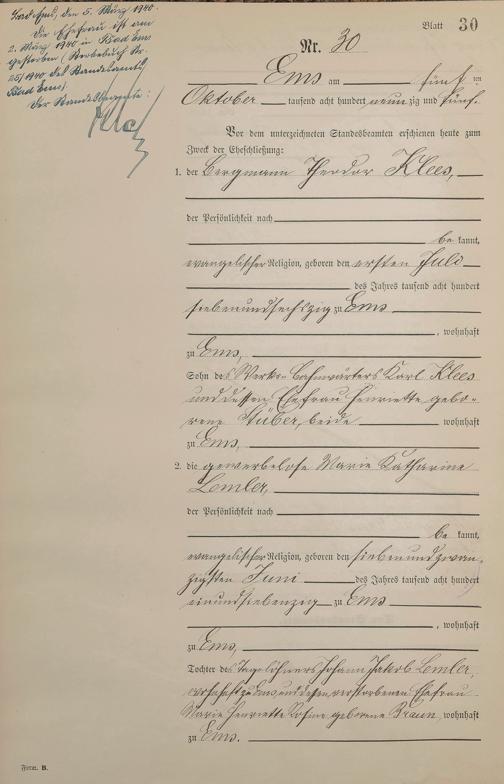 Bad Ems, den 5. März 1940.
Die Ehefrau ist am
2. März 1940 in Bad Ems
gestorben (Sterbebuch Nr.
25/1940 des Standesamts
Bad Ems).
Der Standesbeamte:
Blatt 30
Nr. 30
Ems am fünf ten
Oktober tausend acht hundert neun zig und fünf.
Vor dem unterzeichneten Standesbeamten erschienen heute zum
Zweck der Eheschließung:
1. der Bergmann Theodor Klees,
der Persönlichkeit nach
be kannt,
evangelischer Religion, geboren den ersten Juli
des Jahres tausend acht hundert
siebenundsechszig zu Ems
, wohnhaft
zu Ems,
Sohn des Werks-Bahnwärters Karl Klees
und dessen Ehefrau Henriette gebo-
rene Stüber, beide wohnhaft
zu Ems,
2. die gewerbelose Marie Katharine
Lemler,
der Persönlichkeit nach
be kannt,
evangelischer Religion, geboren den siebenundzwan
zigsten Juni des Jahres tausend acht hundert
einundsiebenzig zu Ems
, wohnhaft
zu Ems,
Tochter des Tagelöhners Johann Jakob Lemler,
wohnhaft zu Ems und dessen verstorbenen Ehefrau
Marie Henriette Rosine geborene Braun, wohnhaft
zu Ems.
Form. B.